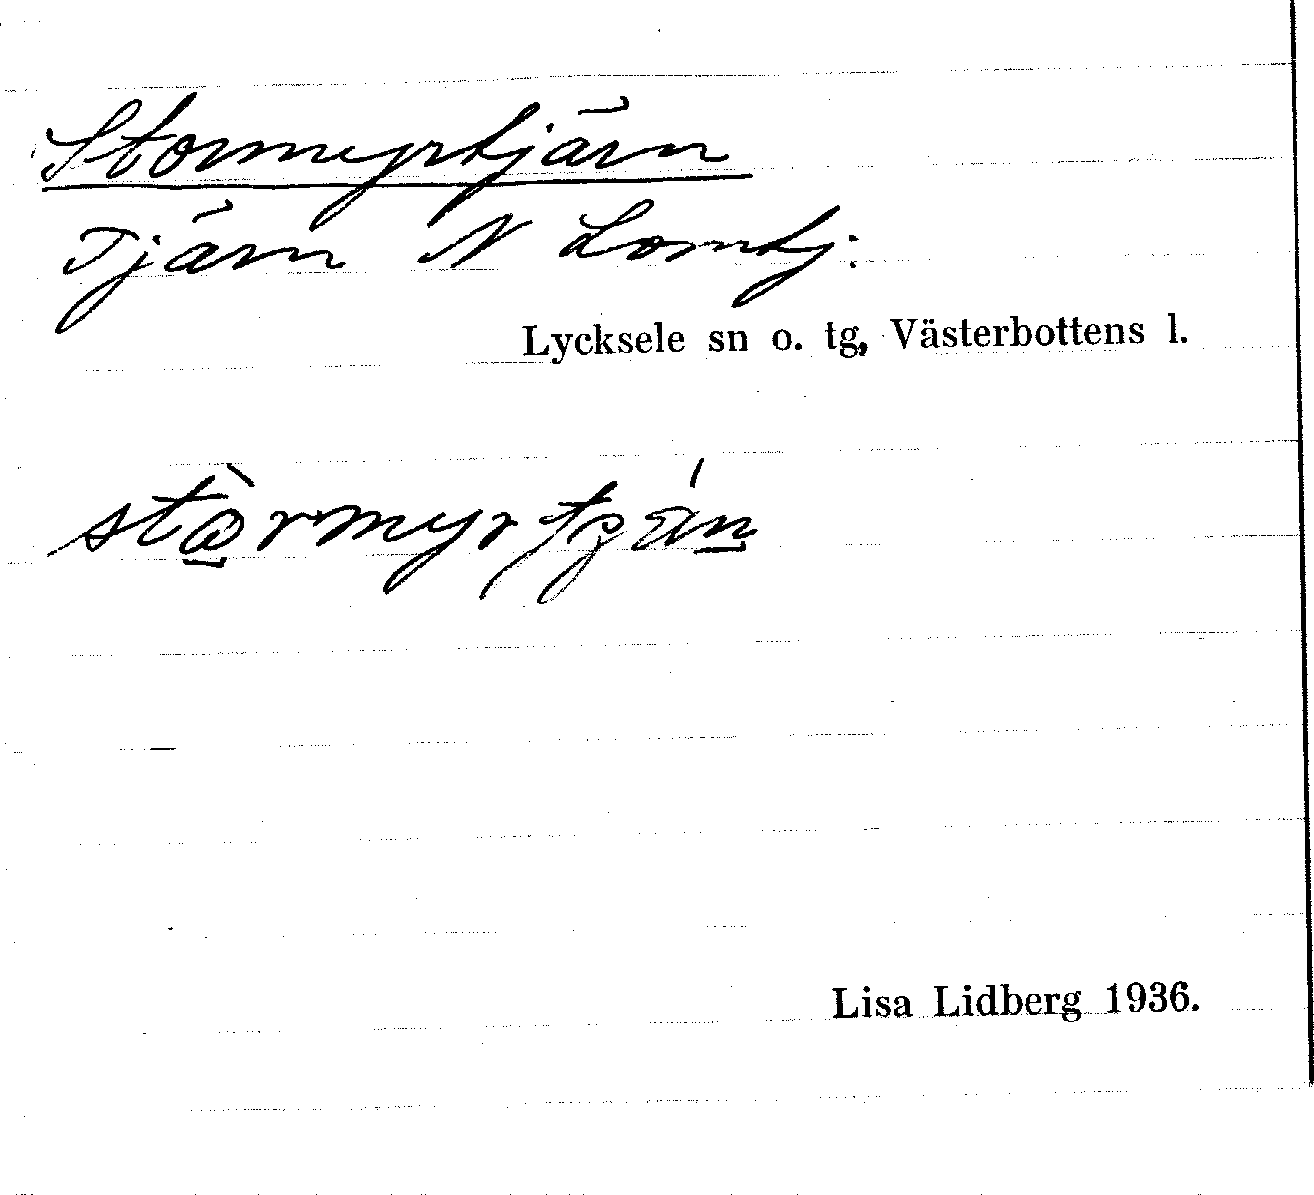 Stormyrtjärn
Tjärn N Lomtj.
Lycksele sn o. tg, Västerbottens l.
Lisa Lidberg 1936.